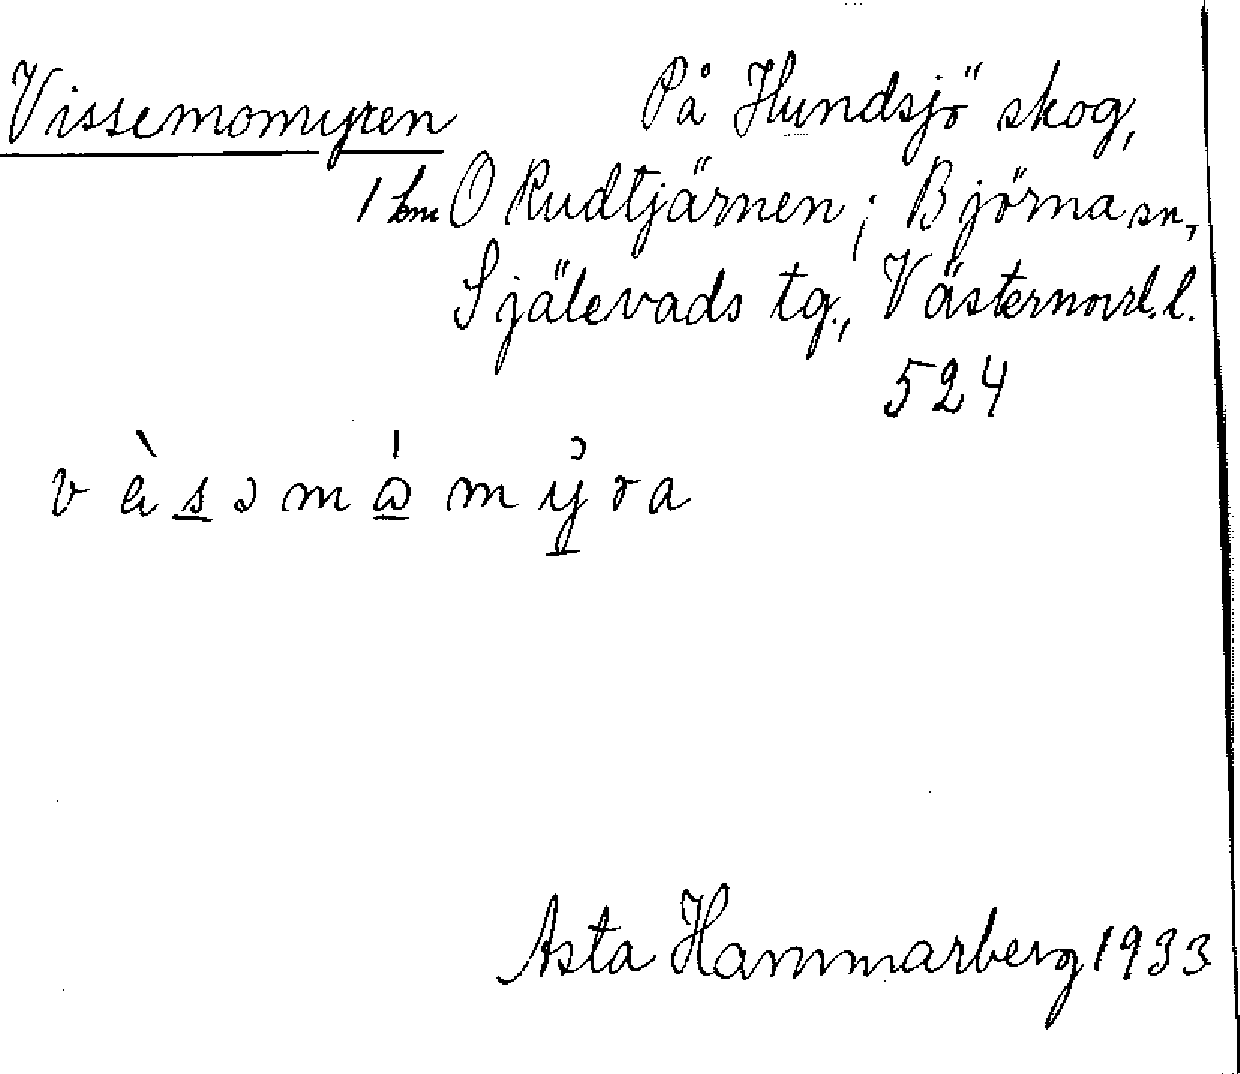 Vissemomyren På Hundsjö skog,
1 km O Rudtjärnen; Björna sn,
Själevads tg., Västernorrl. l.
524
Asta Hammarberg 1933